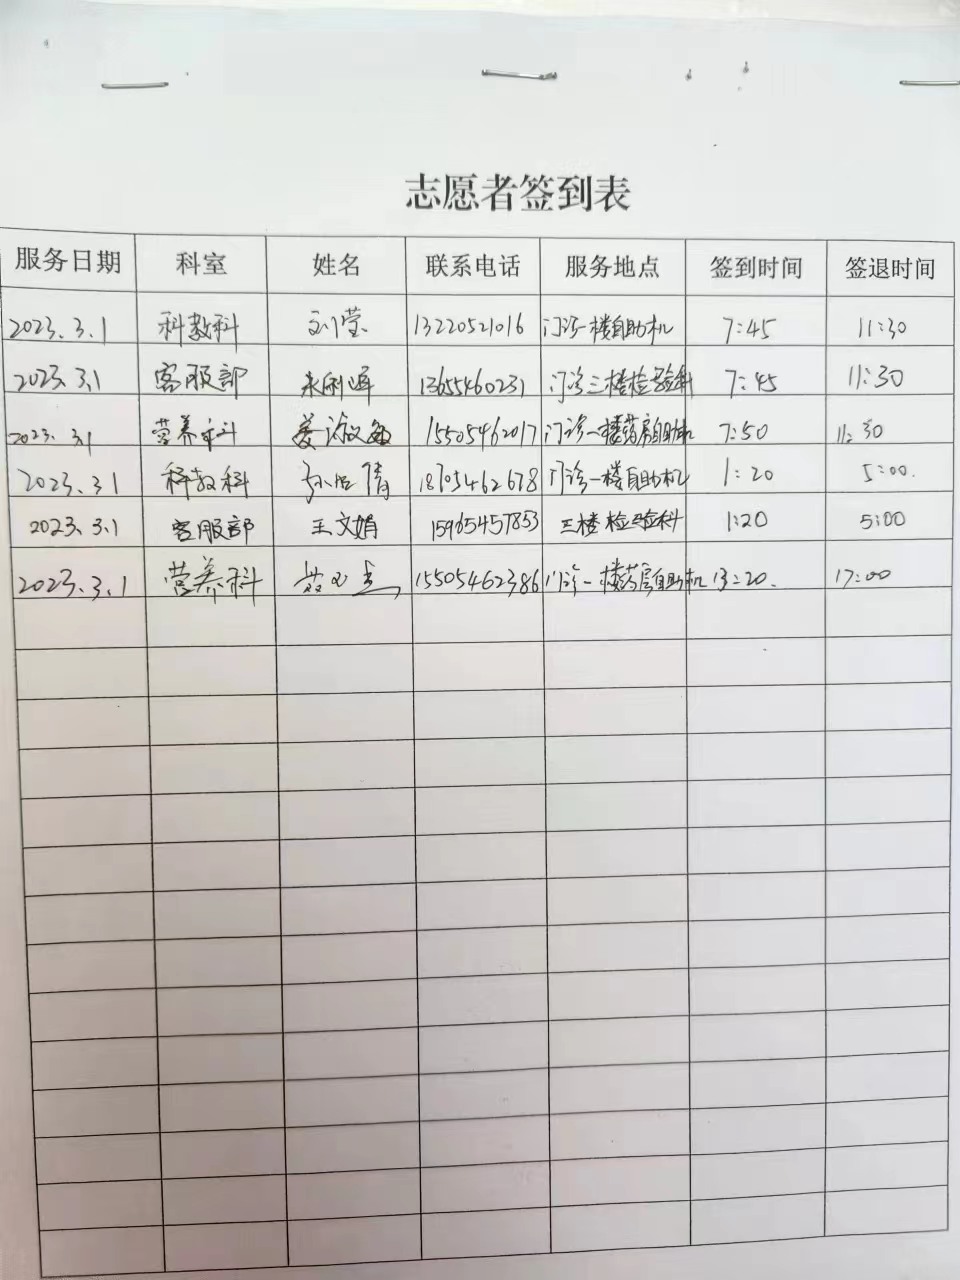 志愿者签到表
服务日期 科室 姓名 联系电话 服务地点 签到时间 签退时间
2023.3.1 科教科 刘莹 13220521016 门诊一楼自助机 7:45 11:30
2023.3.1 客服部 13655460231 门诊三楼检验科 7:45 11:30
2023.3.1 营养科 姜 15505462017 门诊一楼药房自助机 7:50 11:30
2023.3.1 科教科 18705462678 门诊一楼自助机 1:20 5:00.
2023.3.1 客服部 王文娟 15965457853 三楼检验科 1:20 5:00
2023.3.1 营养科 15505462386 门诊一楼药房自助机 13:20. 17:00